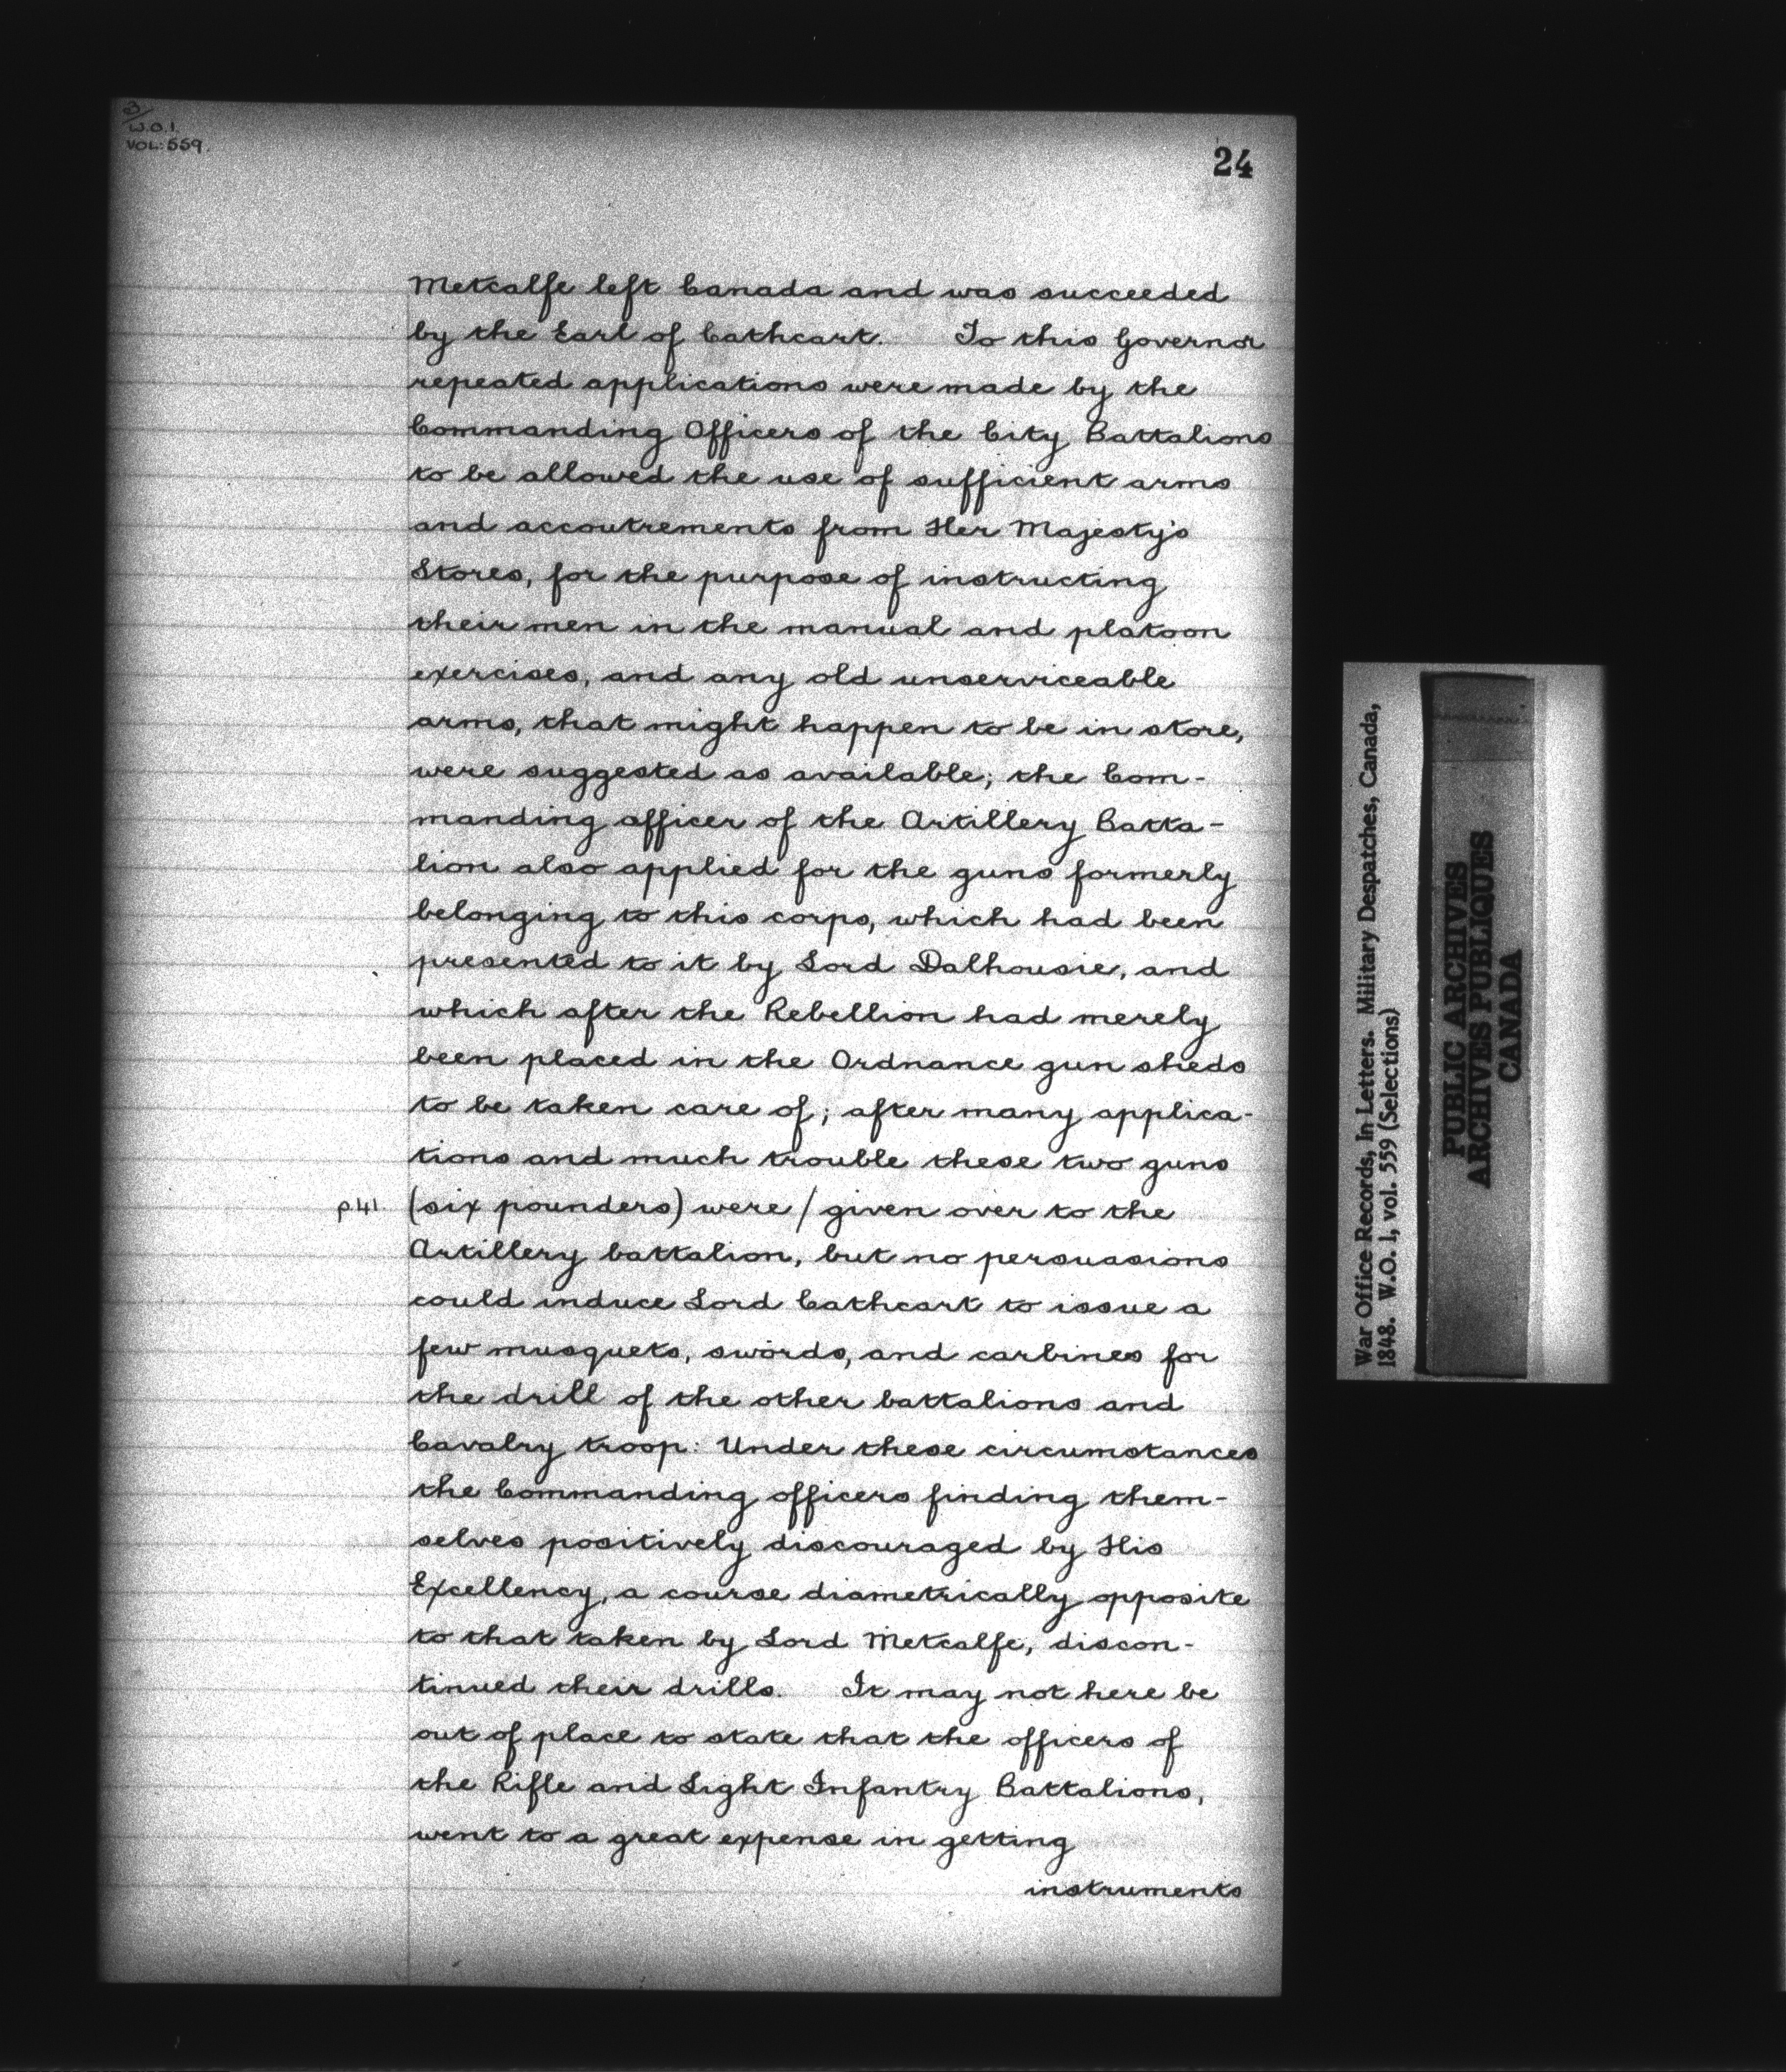 3/
W.O.1.
VOL: 559.
24
Metcalfe left Canada and was succeeded
by the Earl of Cathcart. To this Governor
repeated applications were made by the
Commanding Officers of the City Battalions
to be allowed the use of sufficient arms
and accoutrements from Her Majesty's
Stores, for the purpose of instructing
their men in the manual and platoon
exercises, and any old unserviceable
arms, that might happen to be in store,
were suggested as available; the Com-
manding officer of the Artillery Batta-
lion also applied for the guns formerly
belonging to this corps, which had been
presented to it by Lord Dalhousie, and
which after the Rebellion had merely
been placed in the Ordnance gun sheds
to be taken care of; after many applica-
tions and much trouble these two guns
p.41. (six pounders) were / given over to the
Artillery battalion, but no persuasions
could induce Lord Cathcart to issue a
few musquets, swords, and carbines for
the drill of the other battalions and
Cavalry troop: Under these circumstances
the Commanding officers finding them-
selves positively discouraged by His
Excellency, a course diametrically opposite
to that taken by Lord Metcalfe, discon-
tinued their drills. It may not here be
out of place to state that the officers of
the Rifle and Light Infantry Battalions,
went to a great expense in getting
instruments
War Office Records, In Letters. Military Despatches, Canada,
1848. W.O. 1, vol. 559 (Selections)
PUBLIC ARCHIVES
ARCHIVES PUBLIQUES
CANADA